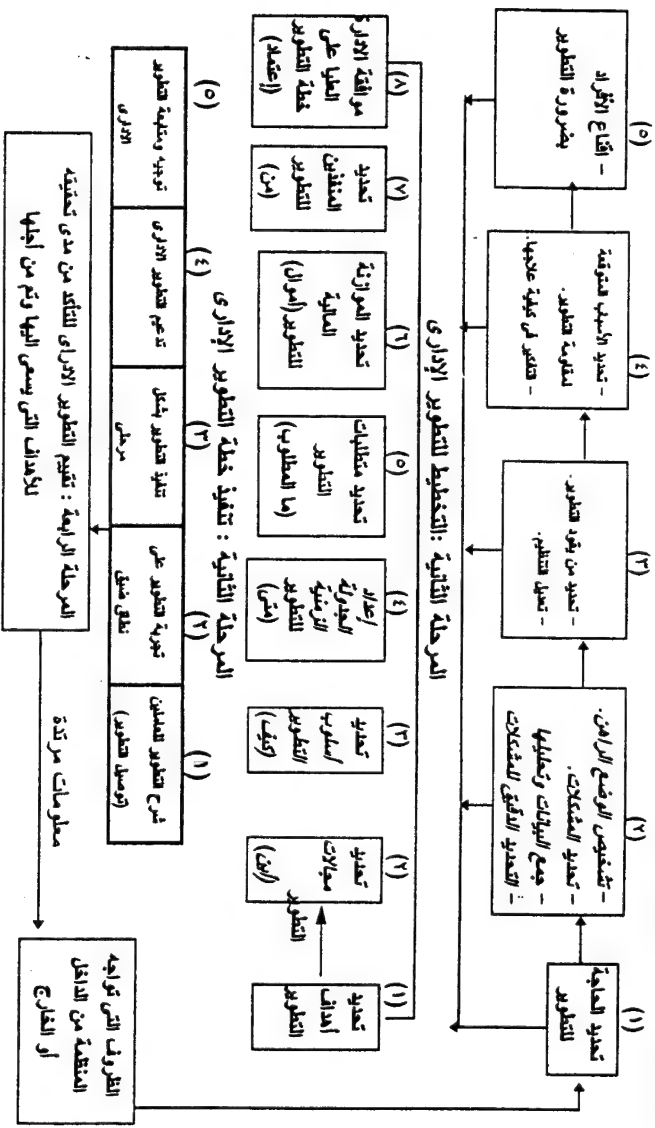 (١)
تحديد الحاجة
للتطوير
(٢)
- تشخيص الوضع الراهن.
- تحديد المشكلات.
- جمع البيانات وتحليلها
- التحديد الدقيق للمشكلات
(٣)
- تحديد من يقود التطوير.
- تعديل التنظيم.
(٤)
- تحديد الأسباب المتوقعة
لمقاومة التطوير.
- التفكير فى كيفية علاجها.
(٥)
- اقناع الأفراد
بضرورة التطوير
المرحلة الثانية : التخطيط للتطوير الإدارى
(١)
تحديد
أهداف
التطوير
(٢)
تحديد
مجالات
التطوير
(أين)
(٣)
تحديد
اسلوب
التطوير
(كيف)
(٤)
إعداد
الجدولة
الزمنية
للتطوير
(متى)
(٥)
تحديد متطلبات
التطوير
(ما المطلوب)
(٦)
تحديد الموازنة
المالية
للتطوير (أموال)
(٧)
تحديد
المنفذين
للتطوير
(من)
(٨)
موافقة الادارة
العليا على
خطة التطوير
(إعتماد)
المرحلة الثانية : تنفيذ خطة التطوير الإدارى
(١)
شرح التطوير للعاملين
(توصيل التطوير)
(٢)
تجربة التطوير على
نطاق ضيق
(٣)
تنفيذ التطوير بشكل
مرحلى
(٤)
تدعيم التطوير الادارى
(٥)
توجيه ومتابعة التطوير
الادارى
المرحلة الرابعة : تقييم التطوير الادراى للتأكد من مدى تحقيقه
للأهداف التى يسعى اليها وتم من أجلها
معلومات مرتدة
الظروف التى تواجه
المنظمة من الداخل
أو الخارج